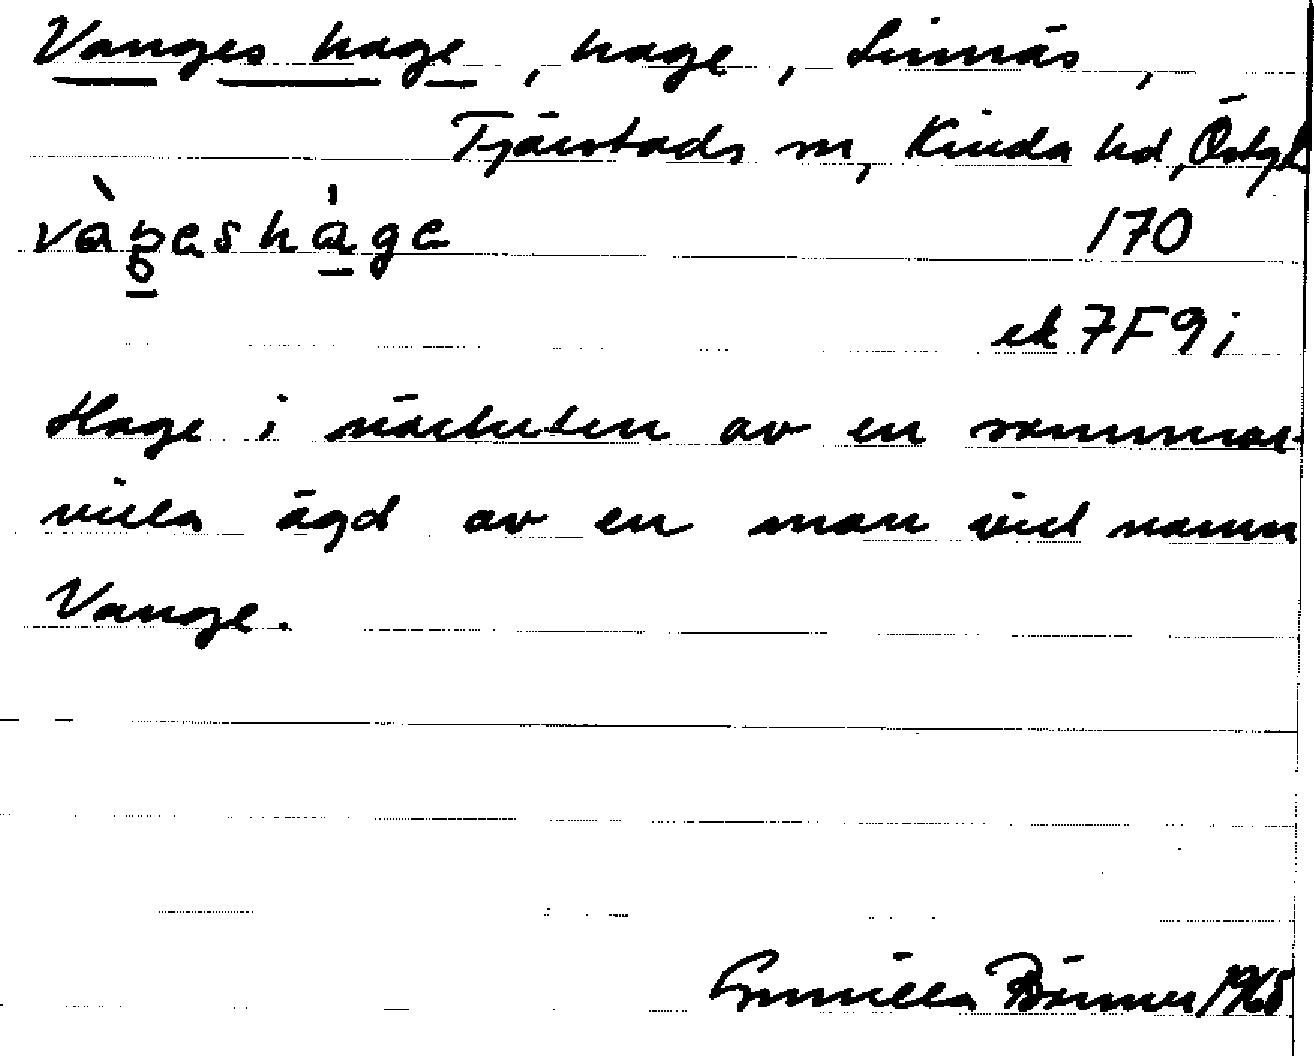 Vanges hage, hage, Linnäs,
Tjärstads sn, Kinda hd, Östgl
vàŋeshá̱ge 170
ek 7F9i
Hage i närheten av en sommar-
villa ägd av en man vid namn
Vange.
Gunilla 1965